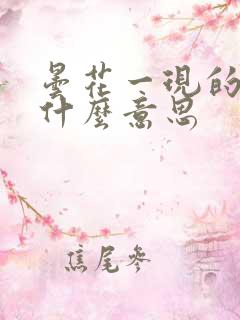 曇花一現的
什麼意思
焦尾參